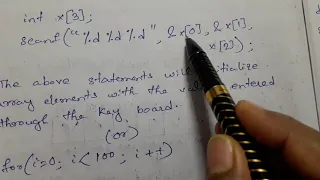 int x[3];
scanf("%d %d %d", &x[0], &x[1],
x[2]);
The above statements will initialize
array elements with the values entered
through the key board.
(or)
for(i=0; i<100; i++)